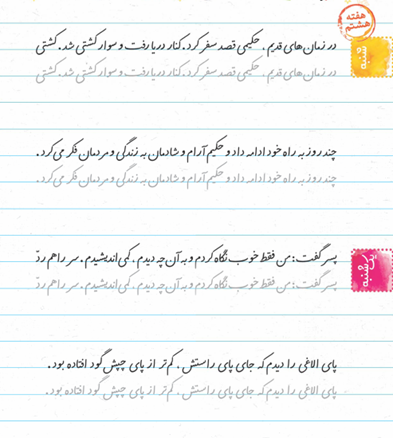 هفته هشتم
شنبه
در زمان های قدیم ، حکیمی قصد سفر کرد. کنار دریا رفت و سوار کشتی شد. کشتی
در زمان های قدیم ، حکیمی قصد سفر کرد. کنار دریا رفت و سوار کشتی شد. کشتی
چند روز به راه خود ادامه داد و حکیم آرام و شادمان به زندگی و مردمان فکر می کرد .
چند روز به راه خود ادامه داد و حکیم آرام و شادمان به زندگی و مردمان فکر می کرد .
یک شنبه
پسر گفت : من فقط خوب نگاه کردم و به آن چه دیدم ، کمی اندیشیدم . سر راهم ردّ
پسر گفت : من فقط خوب نگاه کردم و به آن چه دیدم ، کمی اندیشیدم . سر راهم ردّ
پای الاغی را دیدم که جای پای راستش ، کم تر از پای چپش گود افتاده بود .
پای الاغی را دیدم که جای پای راستش ، کم تر از پای چپش گود افتاده بود .